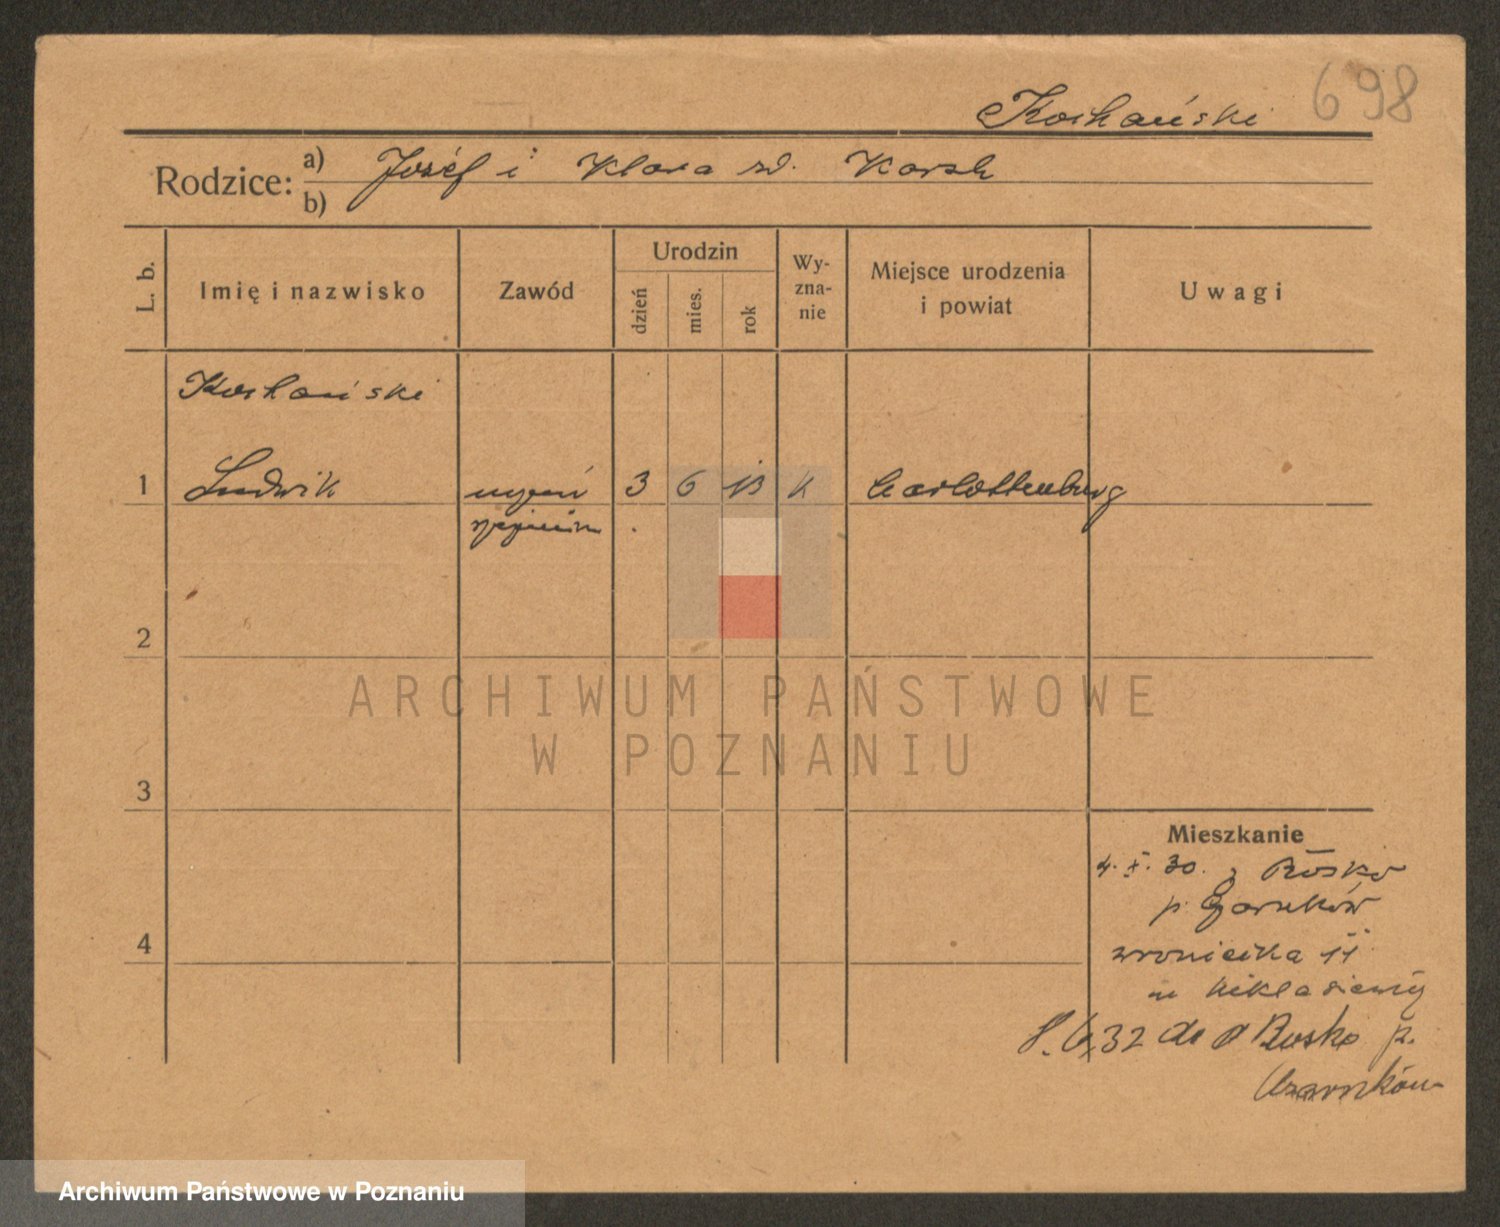 698
Kochański
Rodzice: a) Józef i Klara zd. Korsch
b)
L. b.
Imię i nazwisko
Zawód
Urodzin
dzień
mies.
rok
Wy-
zna-
nie
Miejsce urodzenia
i powiat
Uwagi
Kochański
1 Ludwik uczeń 3 6 13 k Carlottenburg
2
3
4
Mieszkanie
4. X. 30. z Rosko
p. Czarnków
Wroniecka 11
u
32 do Rosko p.
Czarnków
ARCHIWUM PAŃSTWOWE
W POZNANIU
Archiwum Państwowe w Poznaniu